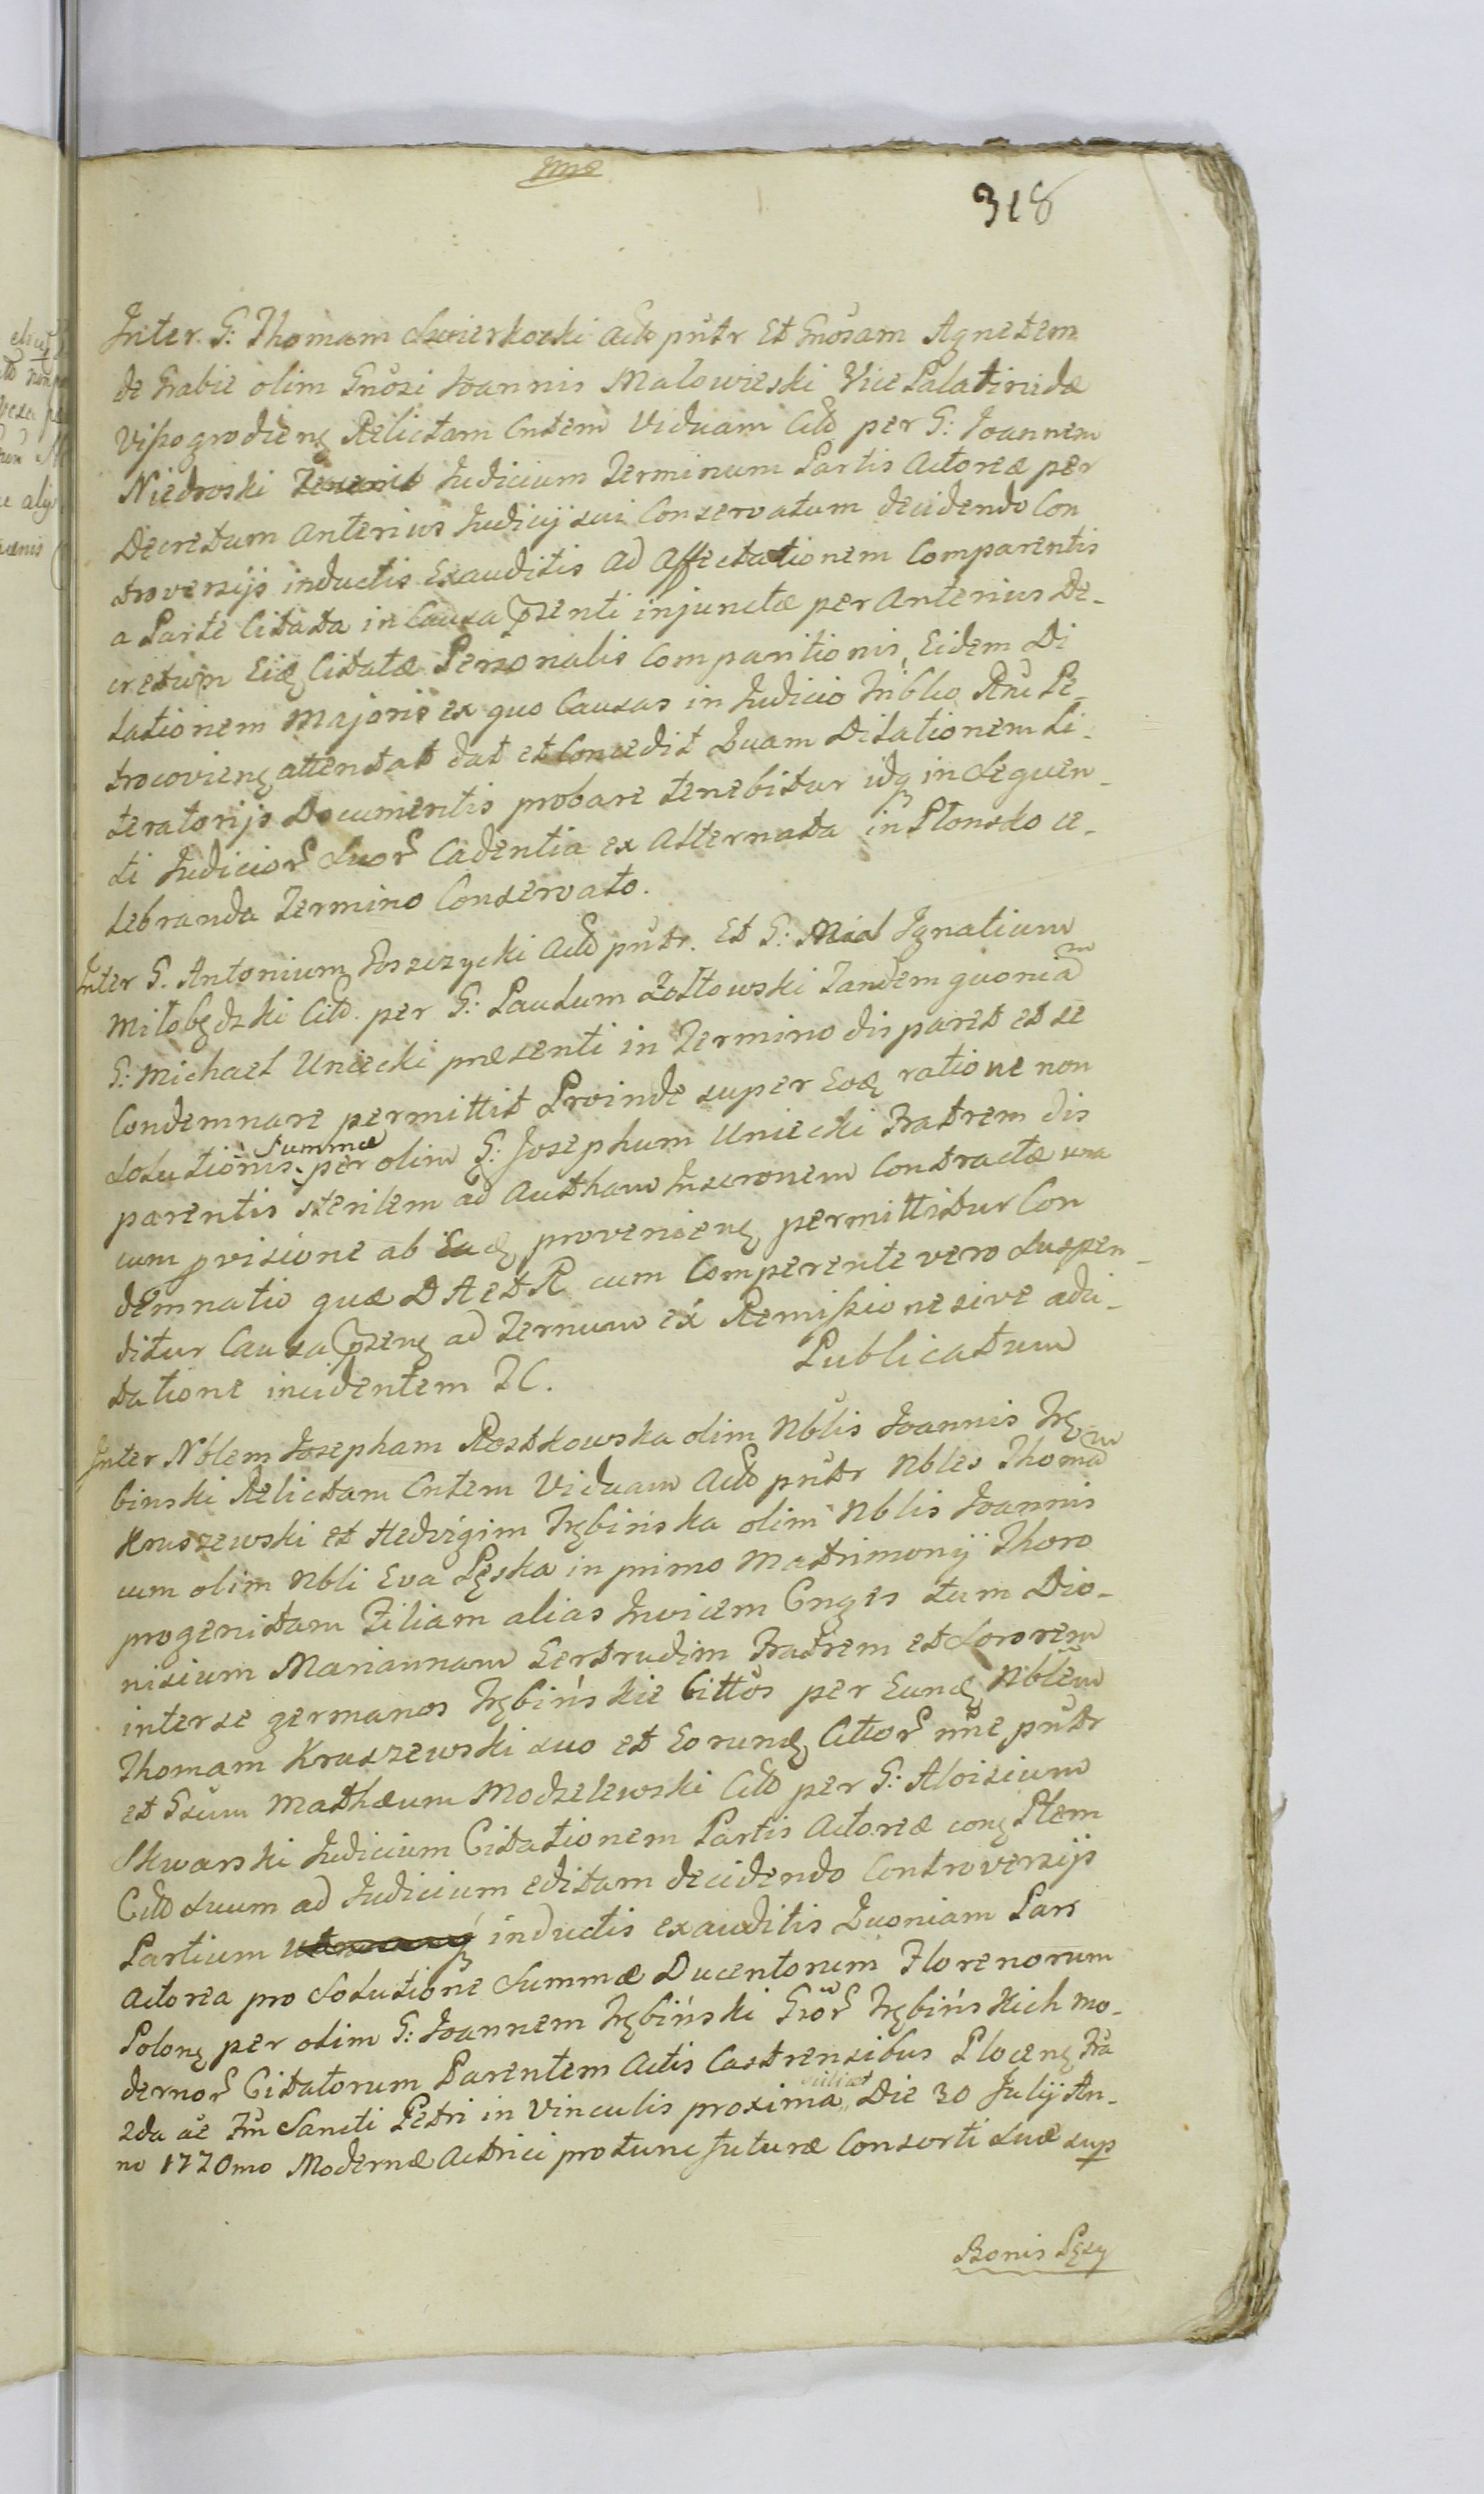 318
Inter G: Thomam Swierkocki Actō pntr Et Gnosam Agnetem
de Grabie olim Gnosi Joannis Malowieski Vice Palatinidæ
Vissogrodieng Relictam Cntem Viduam Citō per G: Joannem
Niedroski Judicium Terminum Partis Actoreæ per
Decretum Anterius Judicij sui Conservatum decidendo Con
troversijs inductis Exauditis ad affectationem Comparentis
a Parte Citata in Causa pzenti injunctæ per Anterius De-
cretum Eidę Citatæ Personalis Comparitionis, Eidem Di
lationem Majoris ex quo Causas in Judicio Triblio Rni Pe-
trocovieng attentat dat et Concedit Quam Dilationem Li-
teratorijs Documentis probare tenebitur idq in Sequen-
ti Judicior Suor Cadentia ex Alternata in Plonsko ce-
lebranda Termino Conservato.
Inter G. Antonium Foszczycki Actō pntr. Et G: Mial Ignatium
Miłobędzki Citō. per G: Paulum Żołtowski Tandem quoniam
G: Michael Uniecki præsenti in Termino disparet et se
Condemnare permittit Proinde super Eoę ratione non
Solutionis Summæ per olim G: Josephum Uniecki Fratrem dis
parentis sterilem ad Autham Inscronem Contractæ una
cum provisione ab Eadę provenieng permittitur Con
demnatio quæ D A et R cum Comperente vero Suspen-
ditur Causa pzeng ad Ternum ex Remissione sive adci-
tatione incidentem TC. Publicatum
Inter Nblem Josepham Rostkowska olim Nblis Joannis Trę-
binski Relictam Cntem Viduam Actō pntr Nbles Thomam
Kruszewski et Hedvigim Trębińska olim Nblis Joannis
cum olim Nbli Eva Lęska in primo Matrimonij Thoro
progenitam Filiam alias Invicem Cnges tum Dio-
nisium Mariannam Gertrudim Fratrem et Sororem
interse germanos Trębińskie Cittos per Eundę Nblem
Thomam Kruszewski suo et Eorundę Cittor nne pntr
et Gsum Mathæum Modzelewski Citō per G: Aloisium
Skwarski Judicium Citationem Partis Actoreæ cong Ptem
Citō Suum ad Judicium editam decidendo Controversijs
Partium inductis exauditis Quoniam Pars
Actorea pro Solutione Summæ Ducentorum Florenorum
Polong per olim G: Joannem Trębiński Gror Trębińskich mo-
dernor Citatorum Parentem Actis Castrensibus Ploceng Fra
2da ae Fm Sancti Petri in Vinculis proxima scilicet Die 30 Julij An-
no 1770mo Modernæ Actrici pro tunc futuræ Consorti Suæ sup
Bonis